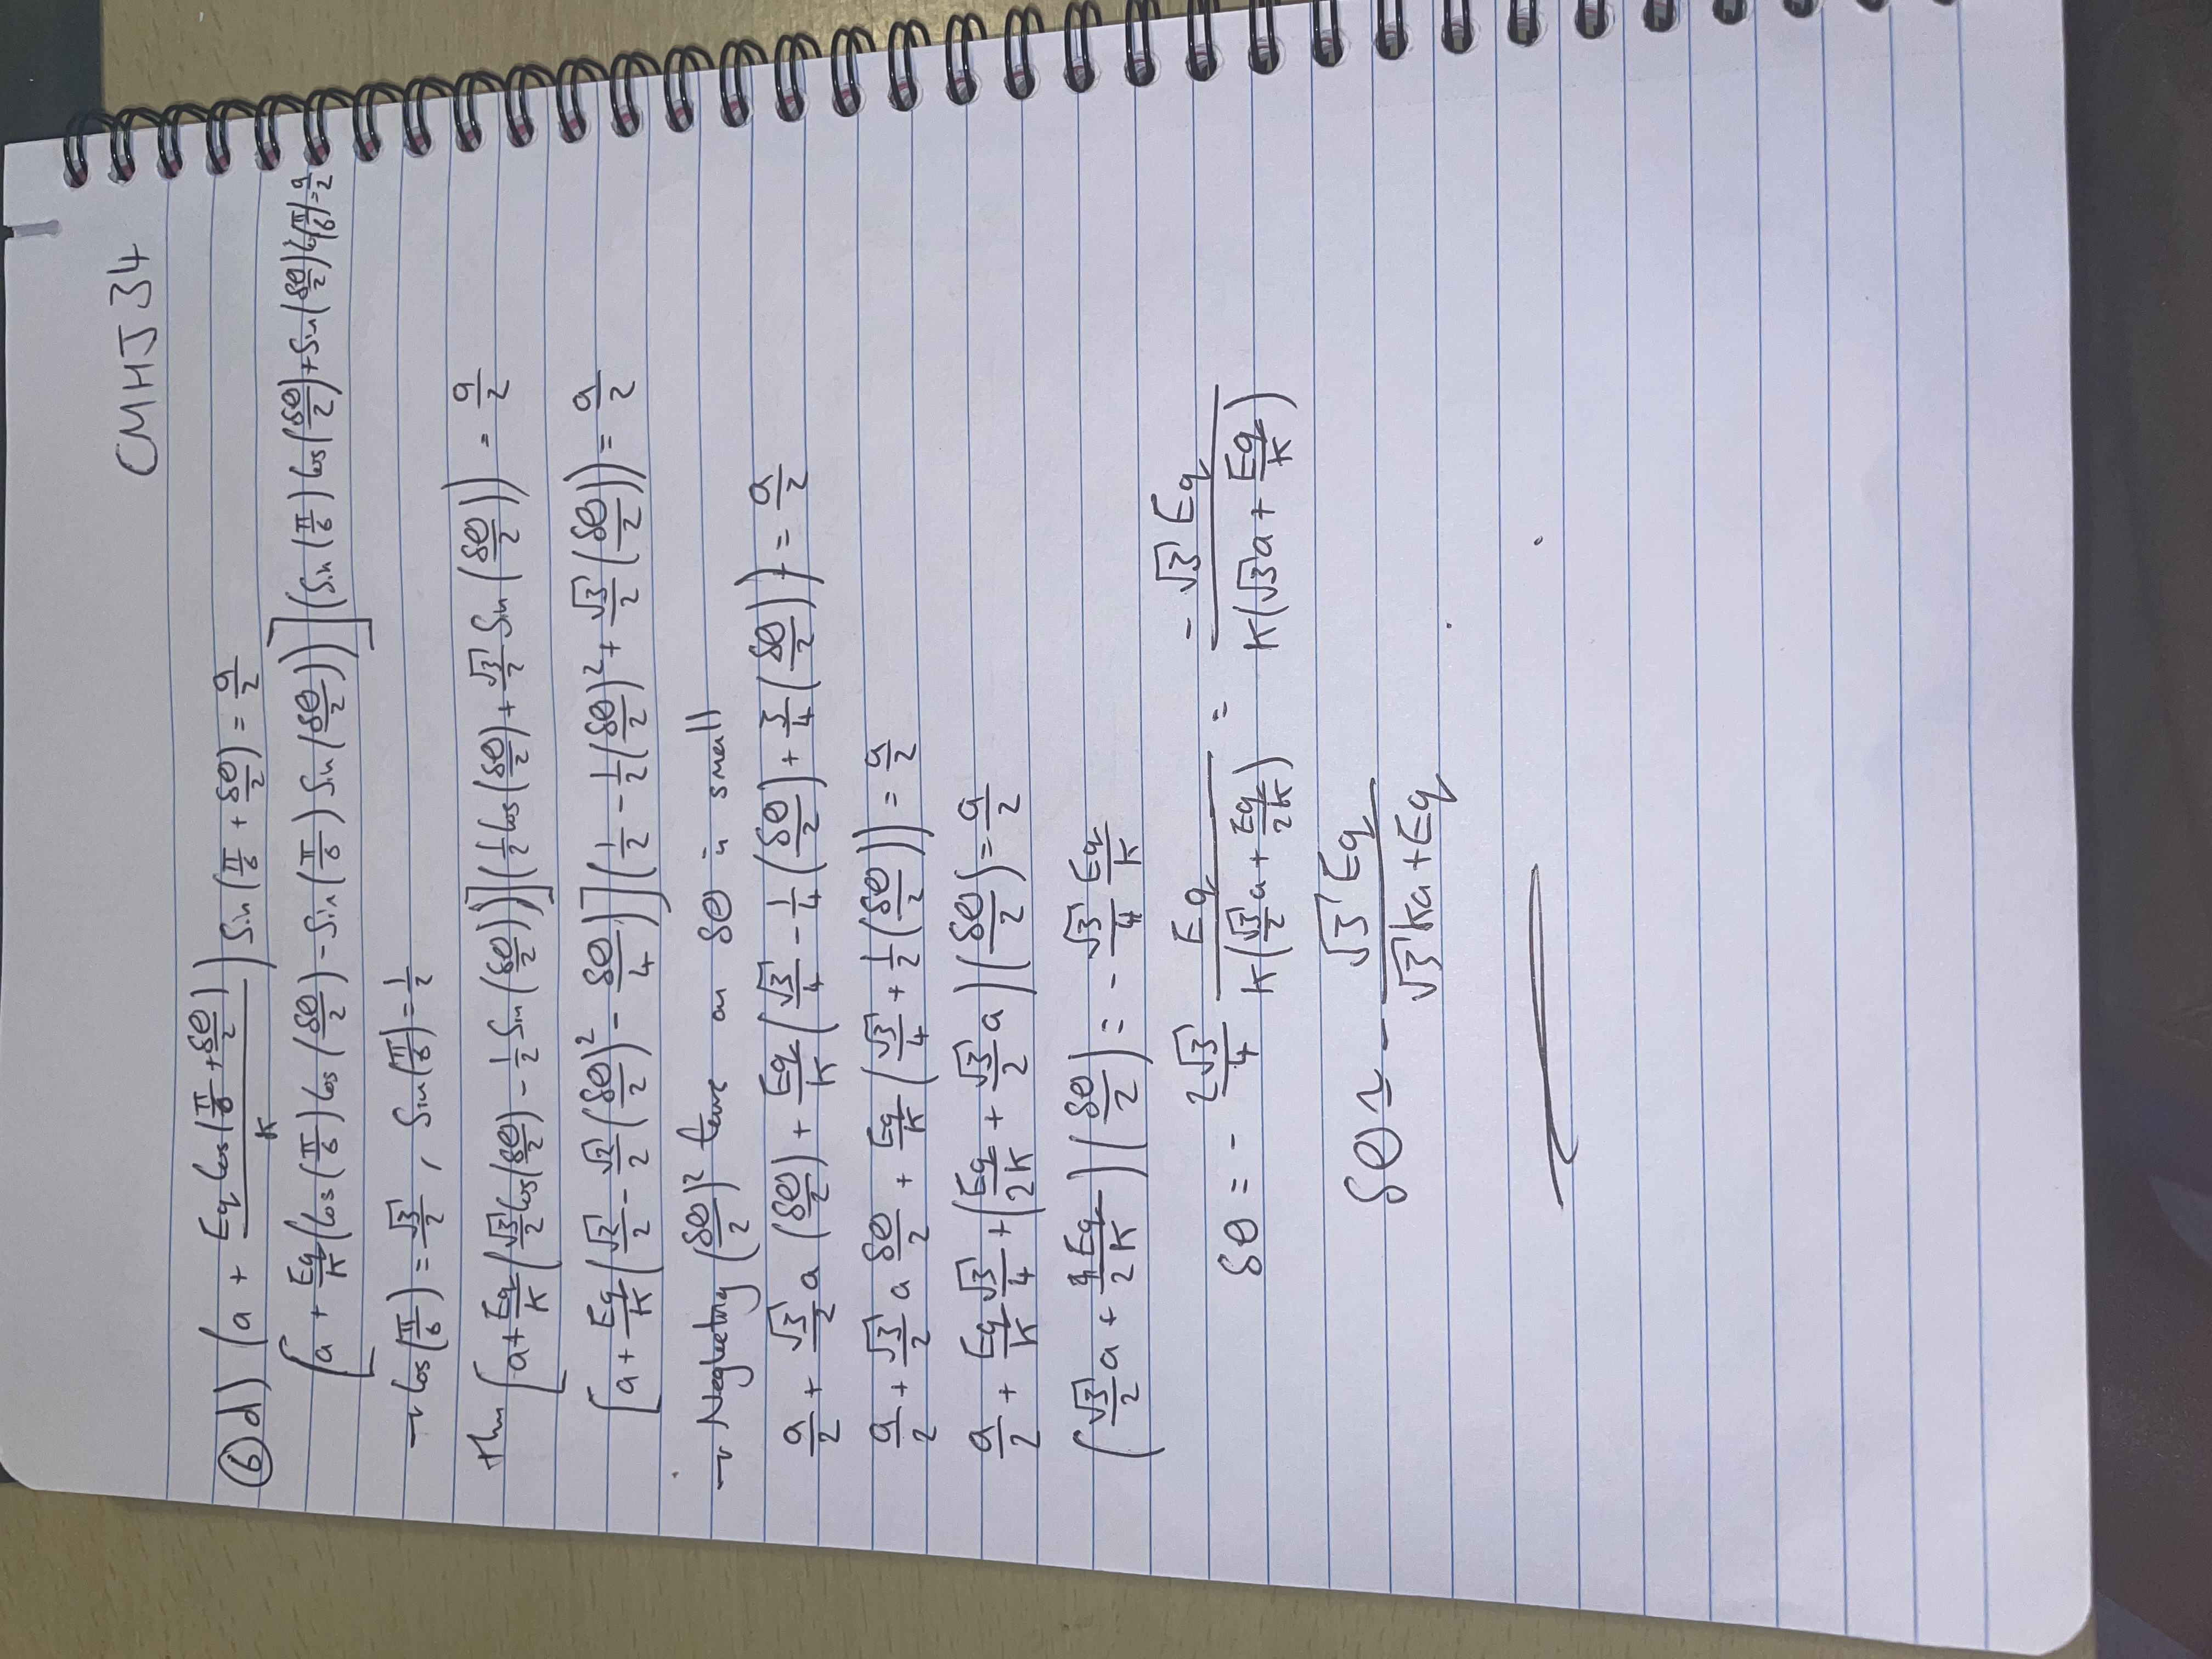 CMHJ34
⑥ d) (a + Eq Cos(π/6 + δθ/2)/K) Sin(π/6 + δθ/2) = a/2
[a + Eq/K (Cos(π/6) Cos(δθ/2) - Sin(π/6) Sin(δθ/2))] (Sin(π/6) Cos(δθ/2) + Sin(δθ/2) Cos(π/6)) = a/2
→ Cos(π/6) = √3/2 , Sin(π/6) = 1/2
thus [a + Eq/K (√3/2 Cos(δθ/2) - 1/2 Sin(δθ/2))] (1/2 Cos(δθ/2) + √3/2 Sin(δθ/2)) = a/2
[a + Eq/K (√2/2 - √2/2 (δθ/2)² - δθ/4)] (1/2 - 1/2 (δθ/2)² + √3/2 (δθ/2)) = a/2
→ Neglecting (δθ/2)² terms as δθ is small
a/2 + √3/2 a (δθ/2) + Eq/K (√3/4 - 1/4 (δθ/2) + 3/4 (δθ/2)) = a/2
a/2 + √3/2 a δθ/2 + Eq/K (√3/4 + 1/2 (δθ/2)) = a/2
a/2 + Eq/K √3/4 + (Eq/2K + √3/2 a) (δθ/2) = a/2
(√3/2 a + Eq/2K) (δθ/2) = - √3/4 Eq/K
δθ = - 2√3/4 Eq/K(√3/2 a + Eq/2K) = -√3 Eq/K(√3 a + Eq/K)
δθ ≃ - √3 Eq/√3 Ka + Eq